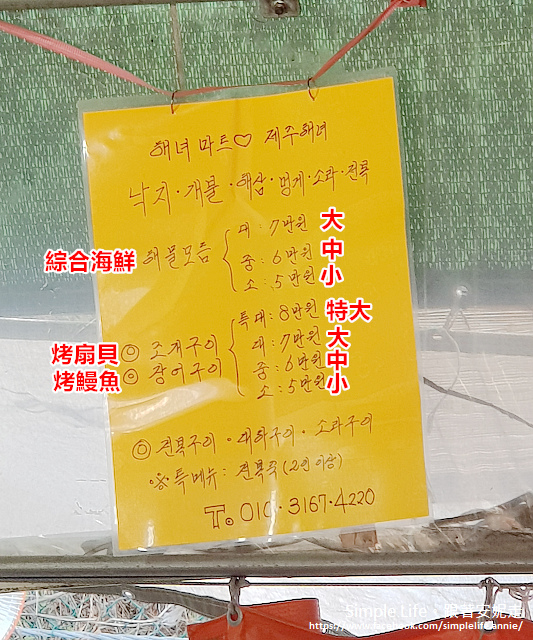 해녀마트♡ 제주해녀
낙지·개불·해삼·멍게·소라·전복
대: 7만원 大
綜合海鮮 해물모듬 중: 6만원 中
소: 5만원 小
특대: 8만원 特大
烤扇貝 ◎ 조개구이 대: 7만원 大
烤鰻魚 ◎ 장어구이 중: 6만원 中
소: 5만원 小
◎ 전복구이 · 대하구이 · 소라구이
※ 특메뉴: 전복죽 (2인 이상)
T. 010·3167·4220
Simple Life：跟著安妮走
https://www.facebook.com/simplelifeannie/